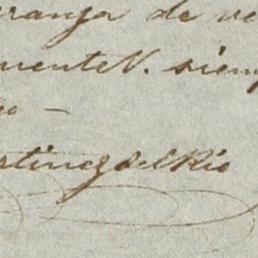 ranza de ve
mente V. siem
eo —
rtinez del Rio